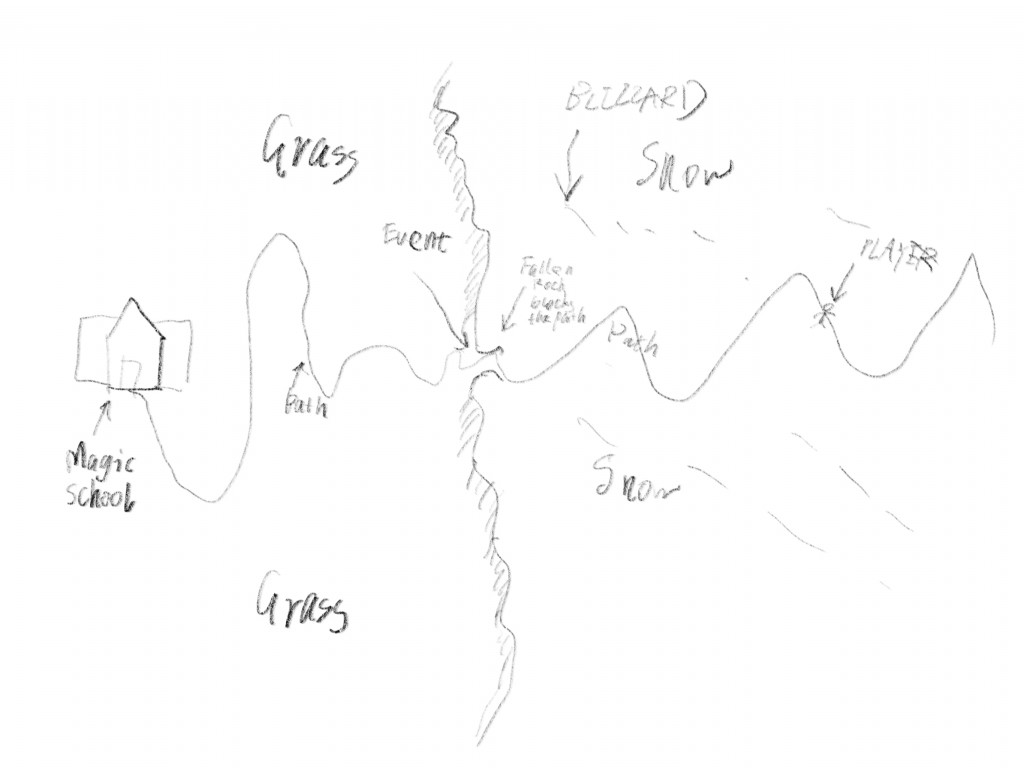 BLIZZARD
Grass
Snow
Event
PLAYER
Fallen
Rock
blocks
the path
Path
Path
Magic
School
Snow
Grass